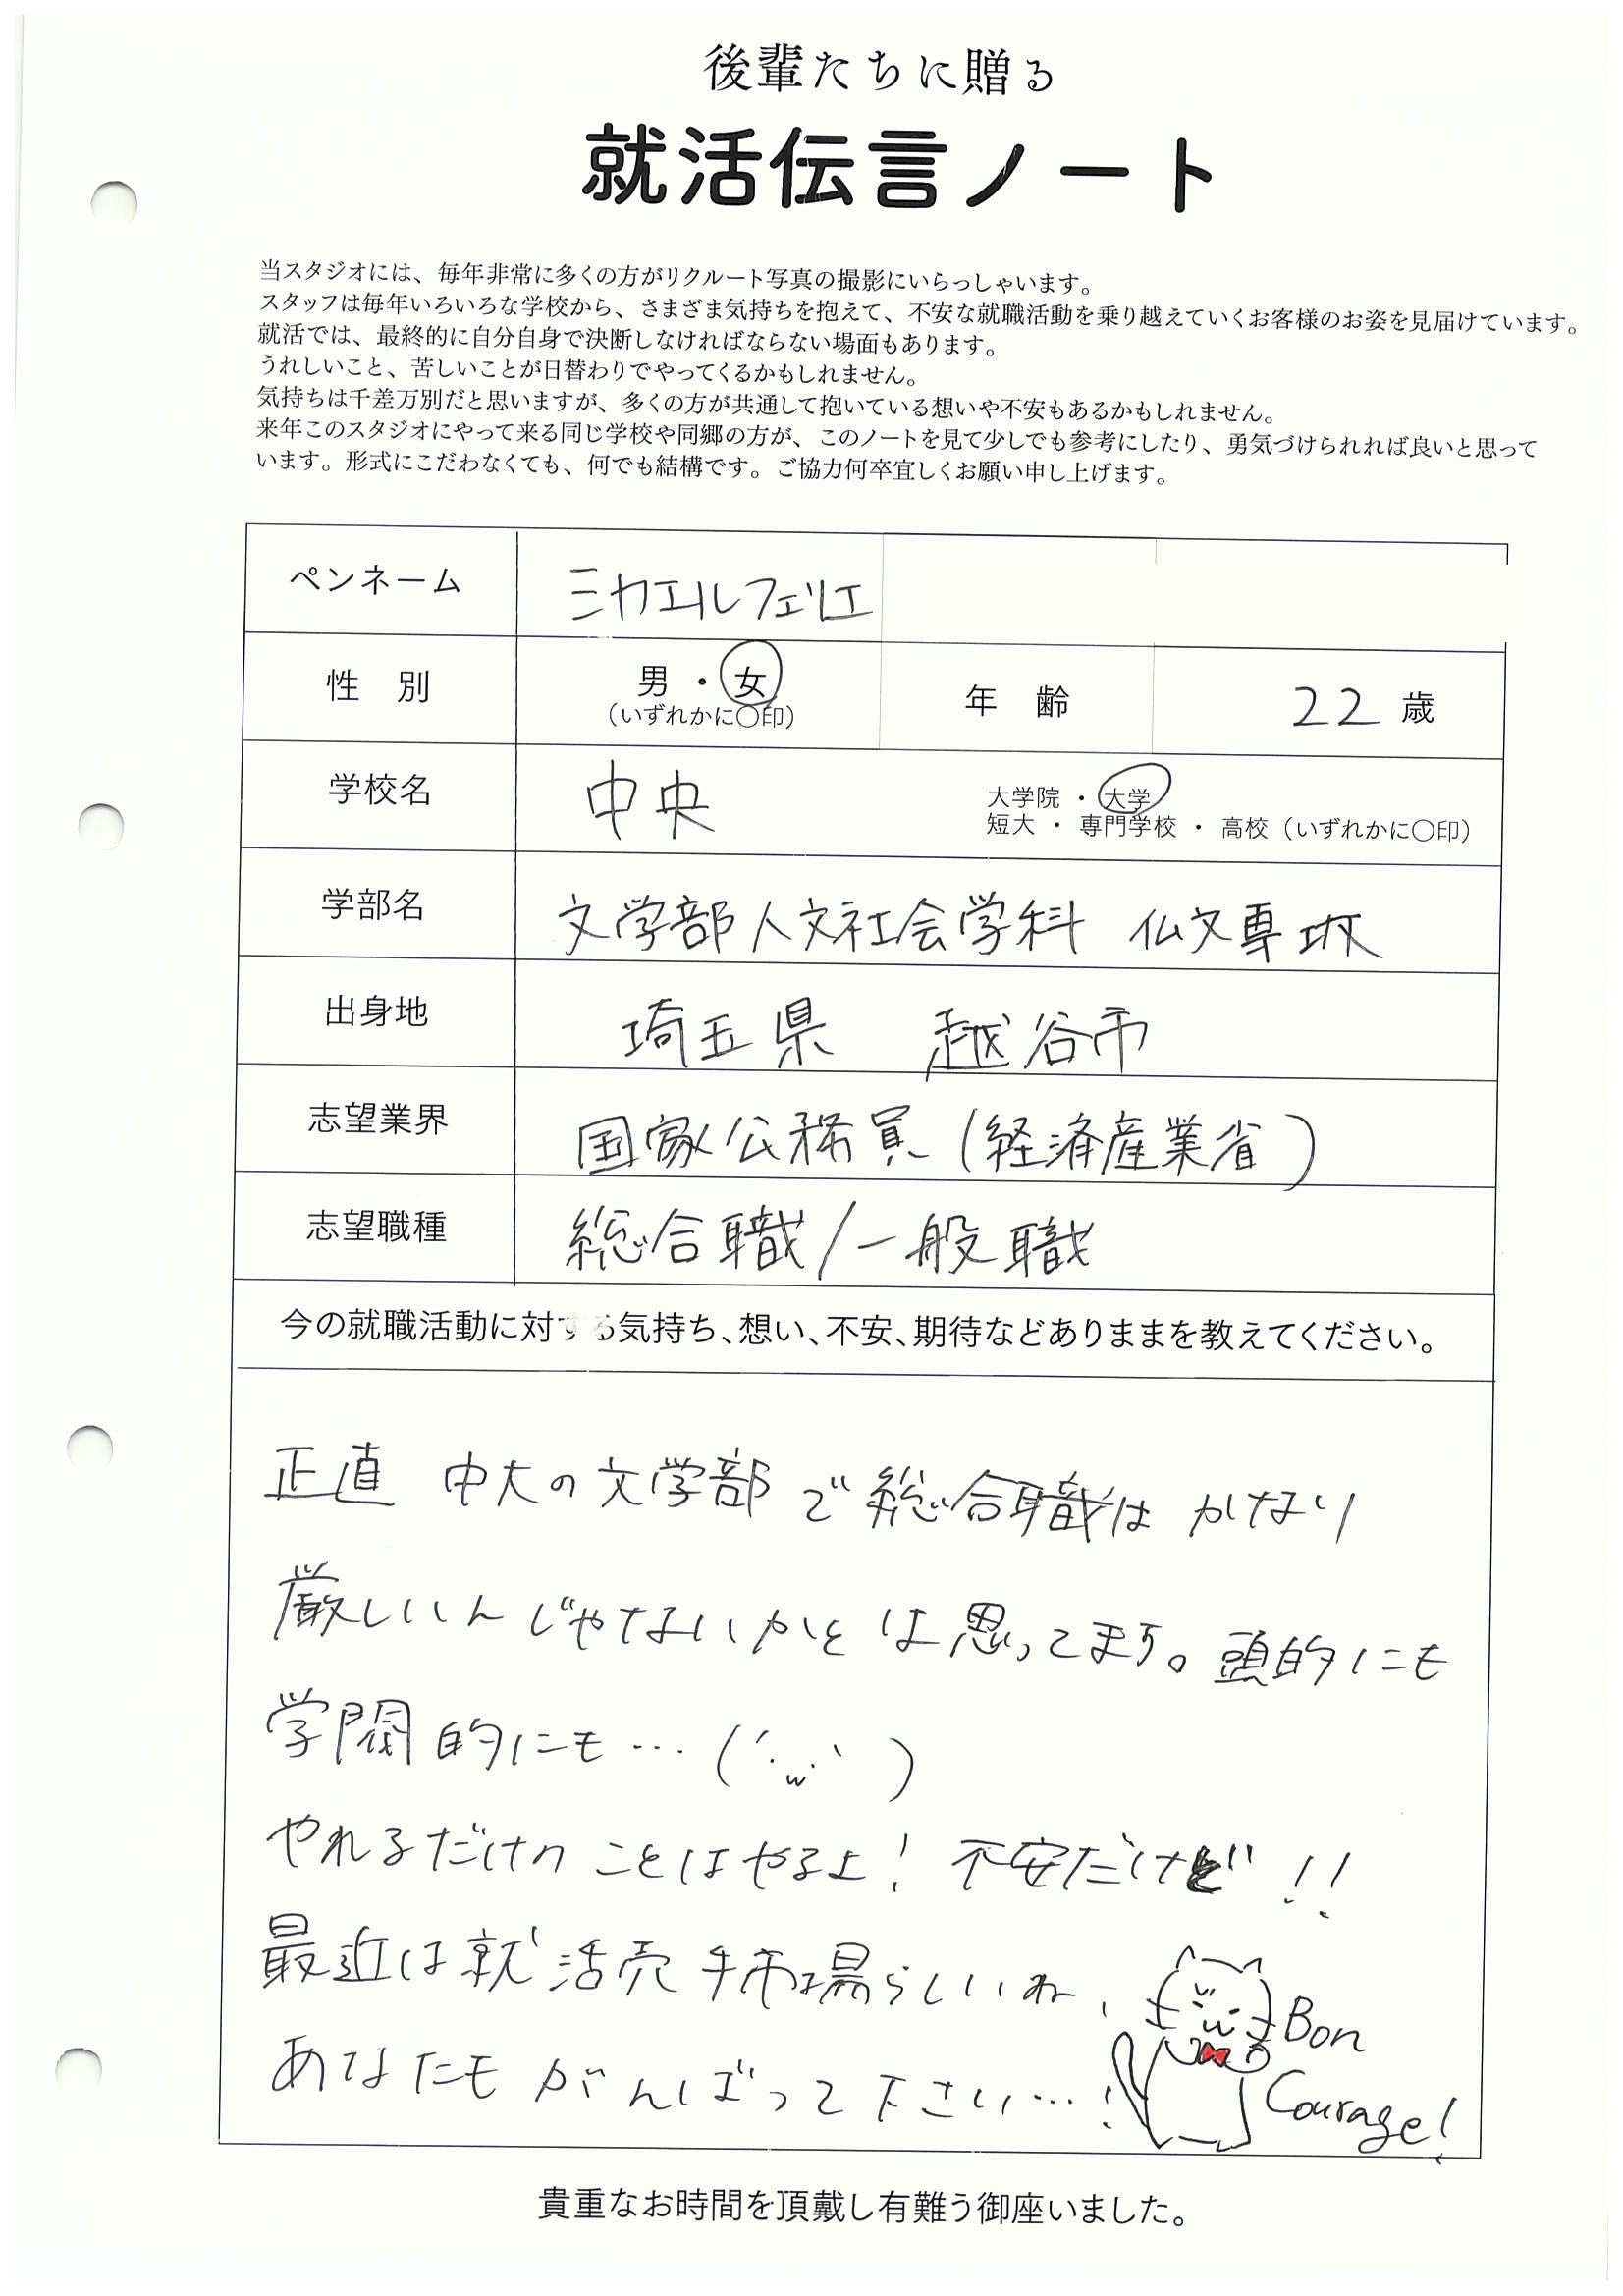 後輩たちに贈る
就活伝言ノート
当スタジオには、毎年非常に多くの方がリクルート写真の撮影にいらっしゃいます。
スタッフは毎年いろいろな学校から、さまざま気持ちを抱えて、不安な就職活動を乗り越えていくお客様のお姿を見届けています。
就活では、最終的に自分自身で決断しなければならない場面もあります。
うれしいこと、苦しいことが日替わりでやってくるかもしれません。
気持ちは千差万別だと思いますが、多くの方が共通して抱いている想いや不安もあるかもしれません。
来年このスタジオにやって来る同じ学校や同郷の方が、このノートを見て少しでも参考にしたり、勇気づけられれば良いと思って
います。形式にこだわなくても、何でも結構です。ご協力何卒宜しくお願い申し上げます。
ペンネーム ミカエルフェリエ
性 別 男 ・ 女 (いずれかに〇印) 年 齢 22 歳
学校名 中央 大学院 ・ 大学
短大 ・ 専門学校 ・ 高校(いずれかに〇印)
学部名 文学部人文社会学科 仏文専攻
出身地 埼玉県 越谷市
志望業界 国家公務員(経済産業省)
志望職種 総合職/一般職
今の就職活動に対する気持ち、想い、不安、期待などありままを教えてください。
正直 中大の文学部で総合職はかなり
厳しいんじゃないかとは思ってます。頭的にも
学閥的にも…(´・ω・`)
やれるだけのことはやるよ!不安だけど!!
最近は就活売手市場らしいね、
あなたもがんばって下さい…!
Bon
Courage!
貴重なお時間を頂戴し有難う御座いました。